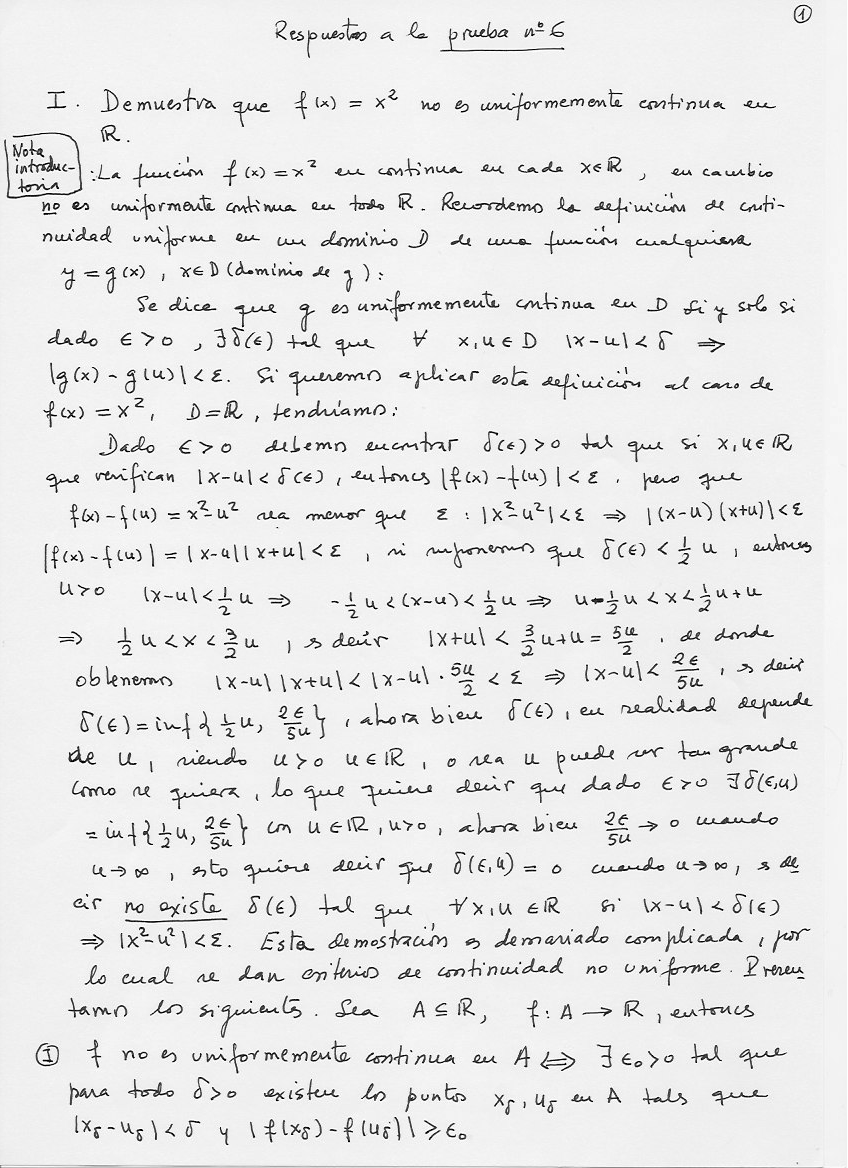 ①
Respuestas a la prueba nº 6
I. Demuestra que f(x) = x² no es uniformemente continua en
ℝ.
Nota
introduc-
toria
: La función f(x) = x² en continua en cada x∈ℝ, en cambio
no es uniformente continua en todo ℝ. Recordemos la definición de conti-
nuidad uniforme en un dominio D de una función cualquiera
y = g(x), x∈D (dominio de g):
Se dice que g es uniformemente continua en D si y solo si
dado ϵ>0, ∃δ(ϵ) tal que ∀ x,u∈D |x-u|<δ ⇒
|g(x) - g(u)|<ε. Si queremos aplicar esta definición al caso de
f(x) = x², D=ℝ, tendríamos:
Dado ϵ>0 debemos encontrar δ(ϵ)>0 tal que si x,u∈ℝ
que verifican |x-u|<δ(ϵ), entonces |f(x)-f(u)|<ε. pero que
f(x)-f(u) = x²-u² sea menor que ε : |x²-u²|<ε ⇒ |(x-u)(x+u)|<ε
|f(x)-f(u)| = |x-u||x+u|<ε, si suponemos que δ(ϵ) < ½ u, entonces
u>0 |x-u|<½u ⇒ -½u<(x-u)<½u ⇒ u-½u<x<½u+u
⇒ ½u<x<3/2 u, es decir |x+u|< 3/2 u+u = 5u/2. de donde
obtenemos |x-u||x+u|<|x-u|·5u/2 < ε ⇒ |x-u|< 2ϵ/5u, es decir
δ(ϵ) = inf{½u, 2ϵ/5u}, ahora bien δ(ϵ), en realidad depende
de u, siendo u>0 u∈ℝ, o sea u puede ser tan grande
como se quiera, lo que quiere decir que dado ϵ>0 ∃δ(ϵ,u)
= inf{½u, 2ϵ/5u} con u∈ℝ, u>0, ahora bien 2ϵ/5u → 0 cuando
u→∞, esto quiere decir que δ(ϵ,u) = 0 cuando u→∞, es de
cir no existe δ(ϵ) tal que ∀x,u∈ℝ si |x-u|<δ(ϵ)
⇒ |x²-u²|<ε. Esta demostración es demasiado complicada, por
lo cual se dan criterios de continuidad no uniforme. Presen
tamos los siguientes. Sea A⊆ℝ, f: A → ℝ, entonces
Ⓘ f no es uniformemente continua en A ⇔ ∃ϵ₀>0 tal que
para todo δ>0 existen los puntos x_δ, u_δ en A tales que
|x_δ-u_δ|<δ y |f(x_δ)-f(u_δ)|⩾ϵ₀